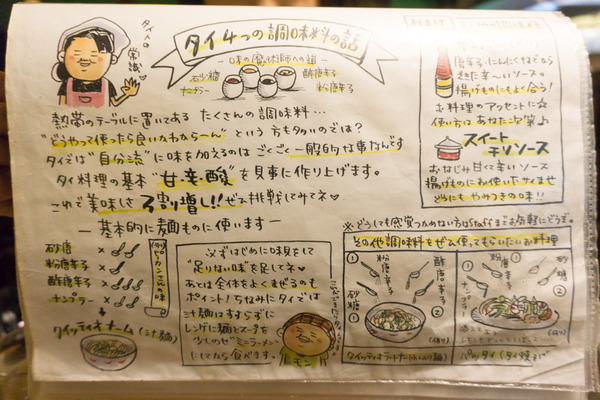 タイ人の常識
タイ4つの調味料の話
－味の魔術師への道－
石少糖
ナンプラー
酢唐辛子
粉唐辛子
熱帯のテーブルに置いてある たくさんの調味料…
"どうやって使ったら良いかわからーん"という方も多いのでは?
タイでは"自分流"に味を加えるのはごくごく一般的な事なんです
タイ料理の基本"甘・辛・酸"を見事に作り上げます。
これで美味しさ3割増し!!ぜひ挑戦してみてネ
－基本的に麺ものに使います－
砂唐 ×
粉唐辛子 ×
酢唐辛子 ×
ナンプラー ×
クイッティオ ナーム (汁麺)
必ずはじめに味見をして
"足りない味"を足してネ
あとは全体をよくまぜるのも
ポイント! ちなみにタイでは
汁麺はすすらずに
レンゲに麺とスープを
少しのせ"ミニラーメン"
にしてから食べます。
唐辛子・にんにくなどから
できた辛〜いソース。
揚げものにもよく合う!
お料理のアクセントに☆
使い方はあなた次第♪
スイートチリソース
おなじみ甘くて辛いソース
揚げものにお使い下さいませ
どうにもやみつきの味!!
※どうしても感覚つかめない方はStaffまでお気軽にどうぞ。
その他調味料をぜひ使ってもらいたいお料理
① ②
粉唐辛子
酢唐辛子
砂糖
① ②
粉唐辛子
砂糖
ナンプラー
酢唐辛子
パッタイ (タイ焼そば)